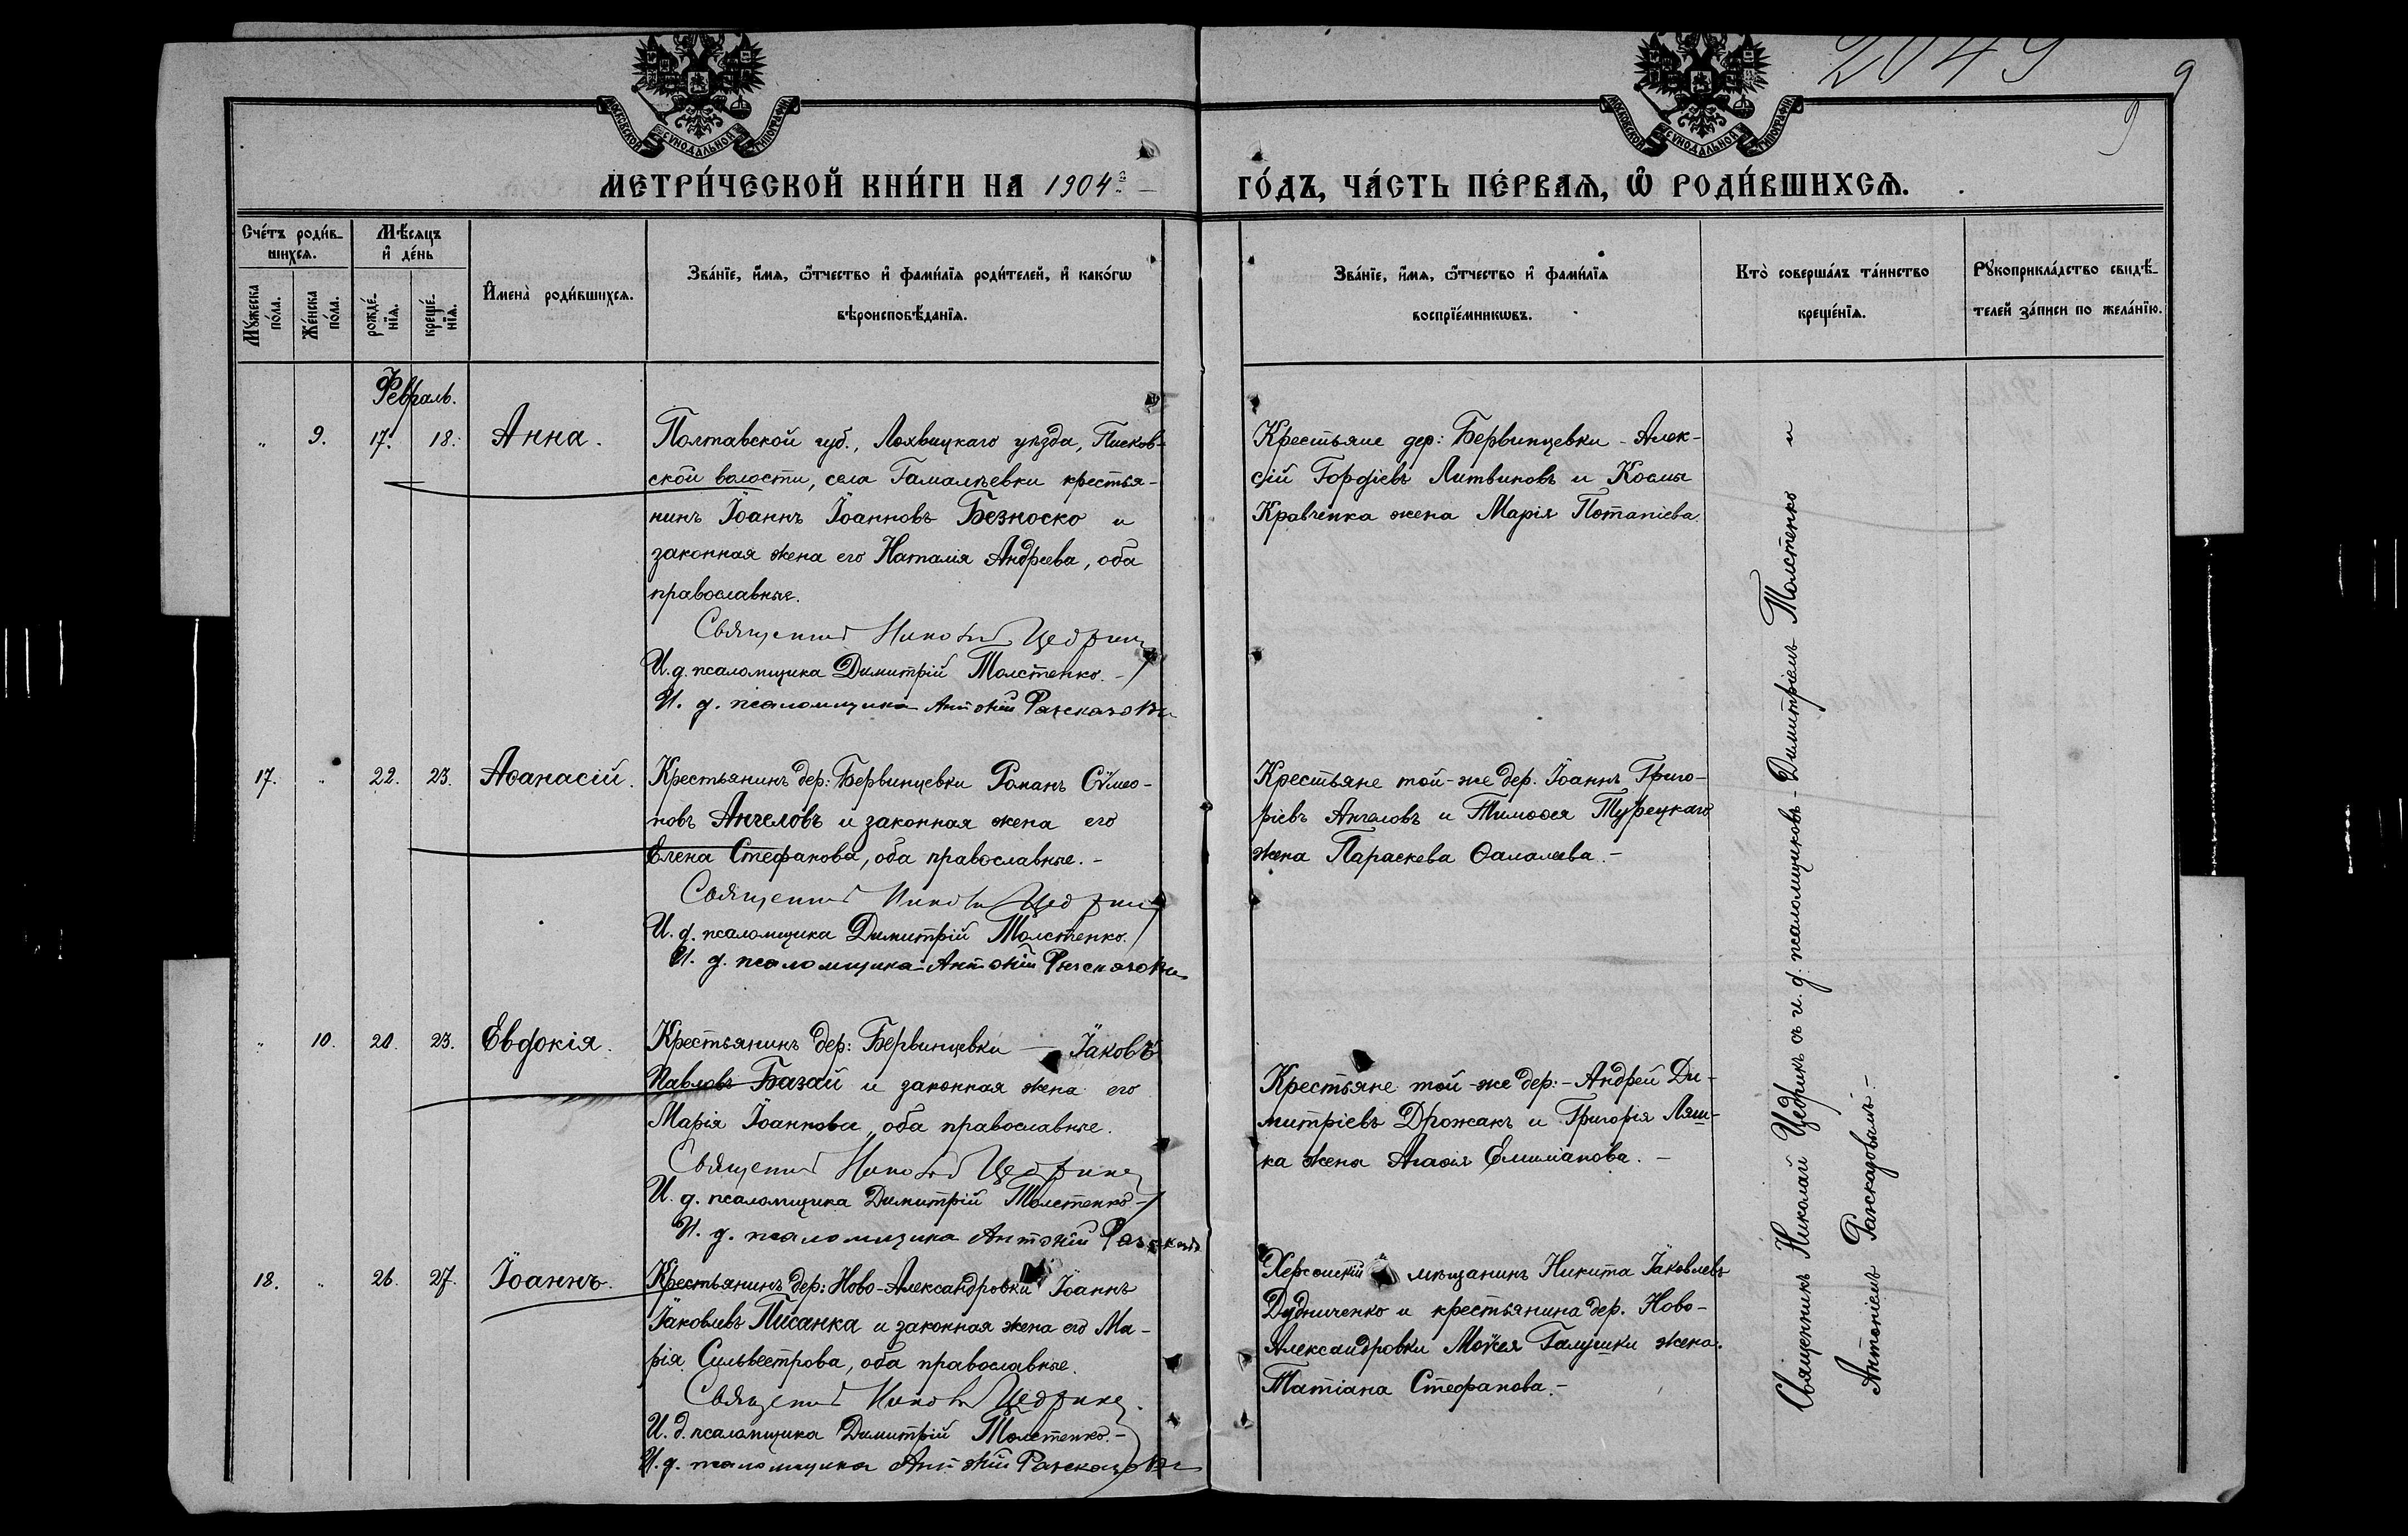 2049
9
9
МОСКОВСКОЙ СѴНОДАЛЬНОЙ ТИПОГРАФІИ
МОСКОВСКОЙ СѴНОДАЛЬНОЙ ТИПОГРАФІИ
МЕТРИ́ЧЕСКОЙ КНИ́ГИ НА 1904й
ГО́ДЪ, ЧА́СТЬ ПЕ́РВАѦ, Ѽ РОДИ́ВШИХСѦ.
Сче́тъ роди́в-
шихсѧ.
Мѣ́сѧцъ
и҆ де́нь
Мꙋ́жеска
по́ла.
Же́нска
по́ла.
рожде́-
нїѧ.
креще́-
нїѧ.
И҆мена̀ роди́вшихсѧ.
Зва́нїе, и҆́мѧ, ѻ҆́тчество и҆ фами́лїѧ роди́телей, и҆ како́гѡ
вѣроисповѣ́данїѧ.
Зва́нїе, и҆́мѧ, ѻ҆́тчество и҆ фами́лїѧ
воспрїе́мникѡвъ.
Кто̀ соверша́лъ та́инство
креще́нїѧ.
Рꙋкоприкла́дство свидѣ́-
телей за́писи по жела́нїю.
Февраль.
" 9. 17. 18. Анна.
Полтавской губ., Лохвицкаго уѣзда, Писков-
ской волости, села Гамалѣевки крестья-
нинъ Іоаннъ Іоанновъ Безноско и
законная жена его Наталія Андреева, оба
православные.
Священникъ Николай Цедрикъ
И. д. псаломщика Димитрій Толстенко. -
И. д. псаломщика Антоній Расказовъ
Крестьяне дер: Бервинцевки - Алек-
сій Гордіевъ Литвиновъ и Космы
Кравченка жена Марія Потапіева.
17. " 22. 23. Аѳанасій.
Крестьянинъ дер: Бервинцевки Романъ Сѵмео-
новъ Ангеловъ и законная жена его
Елена Стефанова, оба православные. -
Священникъ Николай Цедрикъ
И. д. псаломщика Димитрій Толстенко.
И. д. псаломщика Антоній Расказовъ
Крестьяне той-же дер. Іоаннъ Григо-
ріевъ Ангеловъ и Тимоѳея Турецкаго
жена Параскева Ѳалалеева. -
" 10. 20. 23. Евдокія.
Крестьянинъ дер: Бервинцевки — Іаковъ
Павловъ Базай и законная жена его
Марія Іоаннова, оба православные.
Священникъ Николай Цедрикъ
И. д. псаломщика Димитрій Толстенко -
И. д. псаломщика Антоній Расказовъ
Крестьяне той-же дер: - Андрей Ди-
митріевъ Дрожакъ и Григорія Ляш-
ка жена Агаѳія Емиліанова. -
18. " 26. 27. Іоаннъ.
Крестьянинъ дер: Ново-Александровки Іоаннъ
Іаковлевъ Писанка и законная жена его Ма-
рія Сильвестрова, оба православные.
Священникъ Николай Цедрикъ.
И. д. псаломщика Димитрій Толстенко. -
И. д. псаломщика Антоній Расказовъ
Херсонскій мѣщанинъ Никита Іаковлевъ
Дудниченко и крестьянина дер. Ново-
Александровки Моѵсея Галушки жена
Татіана Стефанова. -
Священникъ Николай Цедрикъ съ и. д. псаломщиковъ - Димитріемъ Толстенко и
Антоніемъ Расказовымъ. -